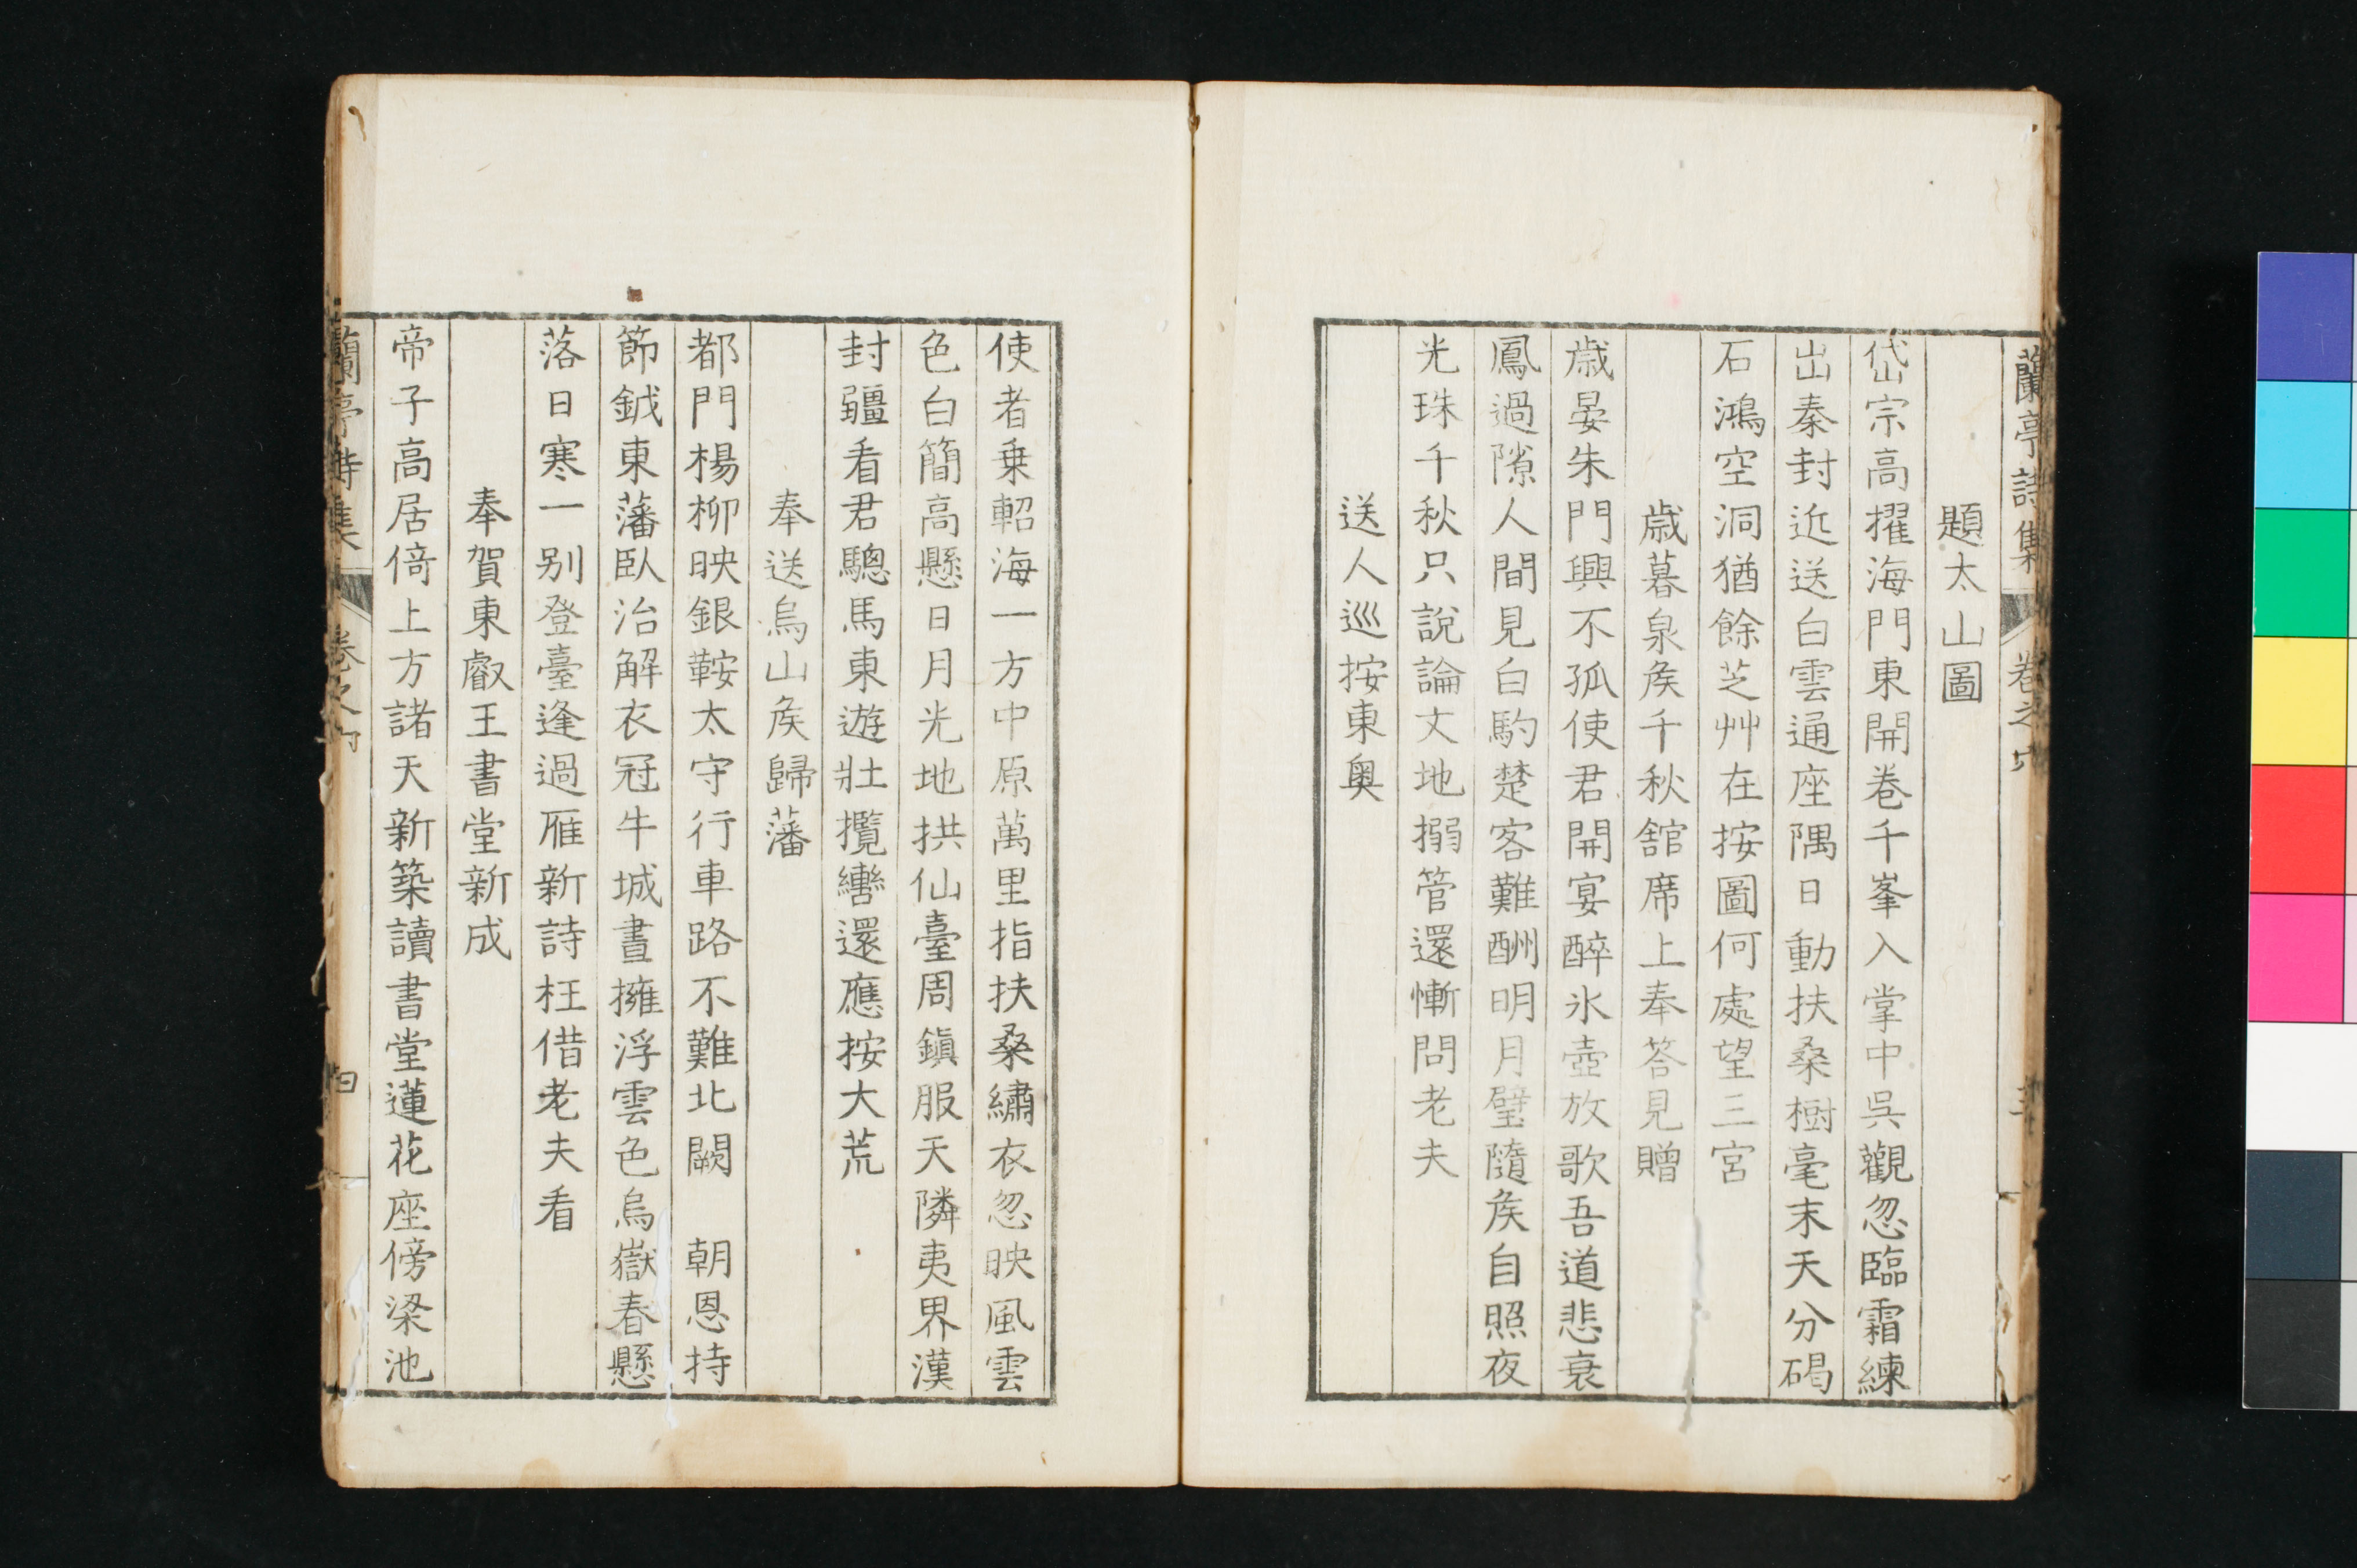 蘭亭詩集 卷之六 三
題太山圖
岱宗高擢海門東開卷千峯入掌中吳觀忽臨霜練
出秦封近送白雲通座隅日動扶桑樹毫末天分碣
石鴻空洞猶餘芝艸在按圖何處望三宮
歳暮泉矦千秋舘席上奉荅見贈
歳晏朱門興不孤使君開宴醉氷壺放歌吾道悲衰
鳳過隙人間見白駒楚客難酬明月璧隨矦自照夜
光珠千秋只說論文地搦管還慚問老夫
送人巡按東奥
使者乗軺海一方中原萬里指扶桑繡衣忽映風雲
色白簡高懸日月光地拱仙臺周鎮服天隣夷界漢
封疆看君驄馬東遊壯攬轡還應按大荒
奉送烏山矦歸藩
都門楊柳映銀鞍太守行車路不難北闕 朝恩持
節鉞東藩臥治解衣冠牛城晝擁浮雲色烏嶽春懸
落日寒一別登臺逢過雁新詩枉借老夫看
奉賀東叡王書堂新成
帝子高居倚上方諸天新築讀書堂蓮花座傍梁池
蘭亭詩集 卷之 四